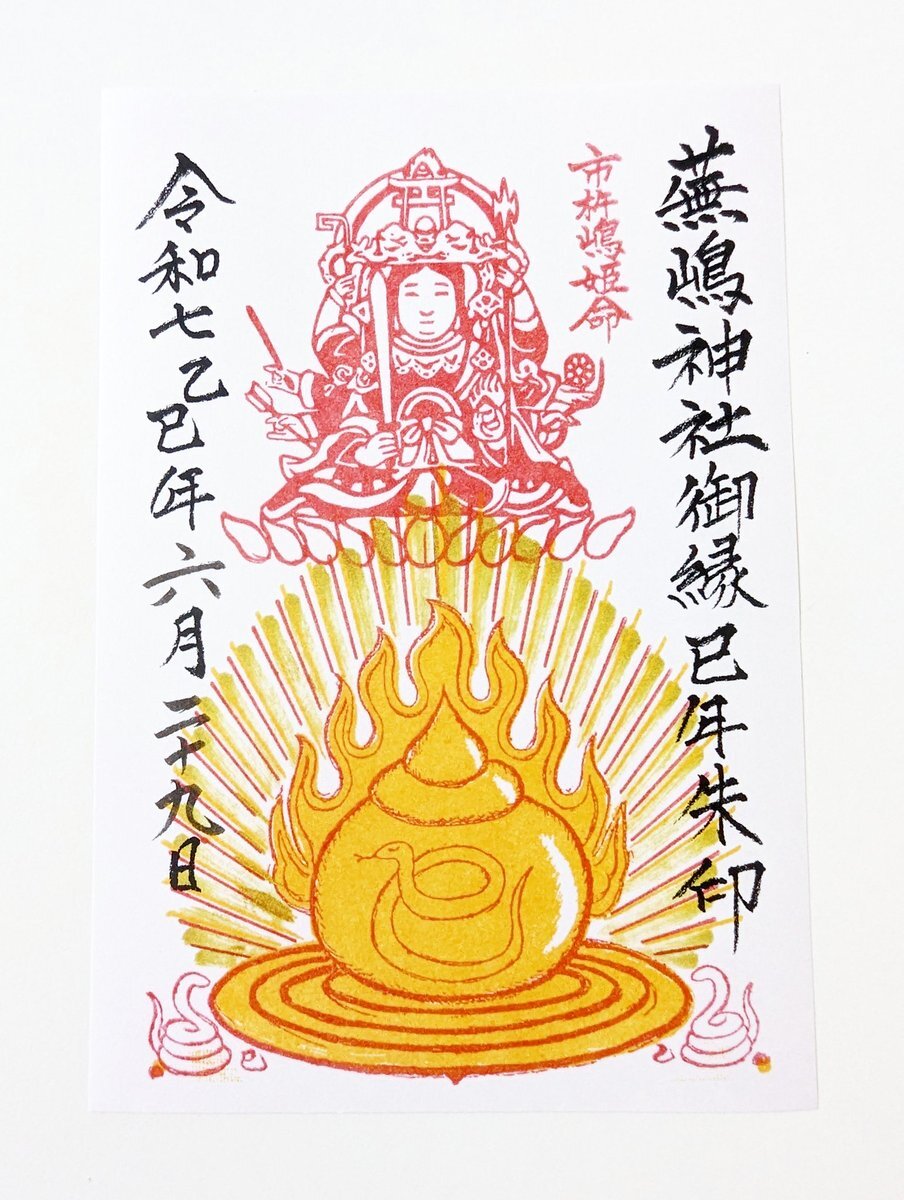 蕪嶋神社御縁巳年朱印
市杵嶋姫命
令和七乙巳年六月二十九日